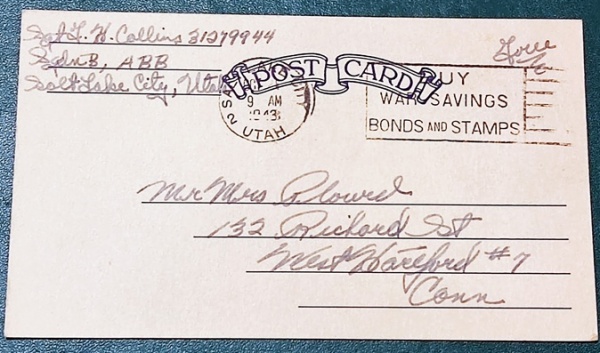 Sgt L. H. Collins 31279944
Sqdn B, ABB
Salt Lake City, Utah
POST CARD
2
9 AM
1943
UTAH
BUY
WAR SAVINGS
BONDS AND STAMPS
Mr Mrs Plourd
132 Richard St
West Hartford #7
Conn